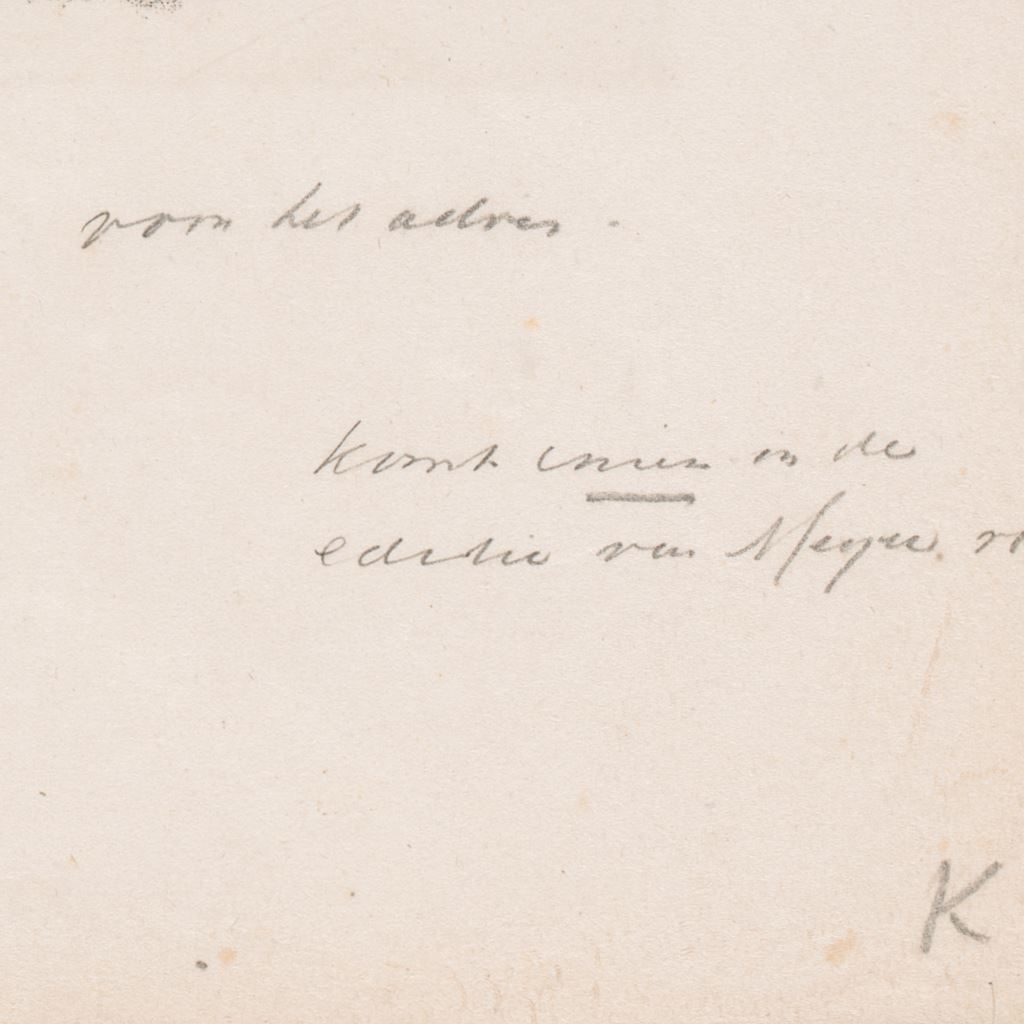 voor het adres.
komt in de
editie van Meyer
K